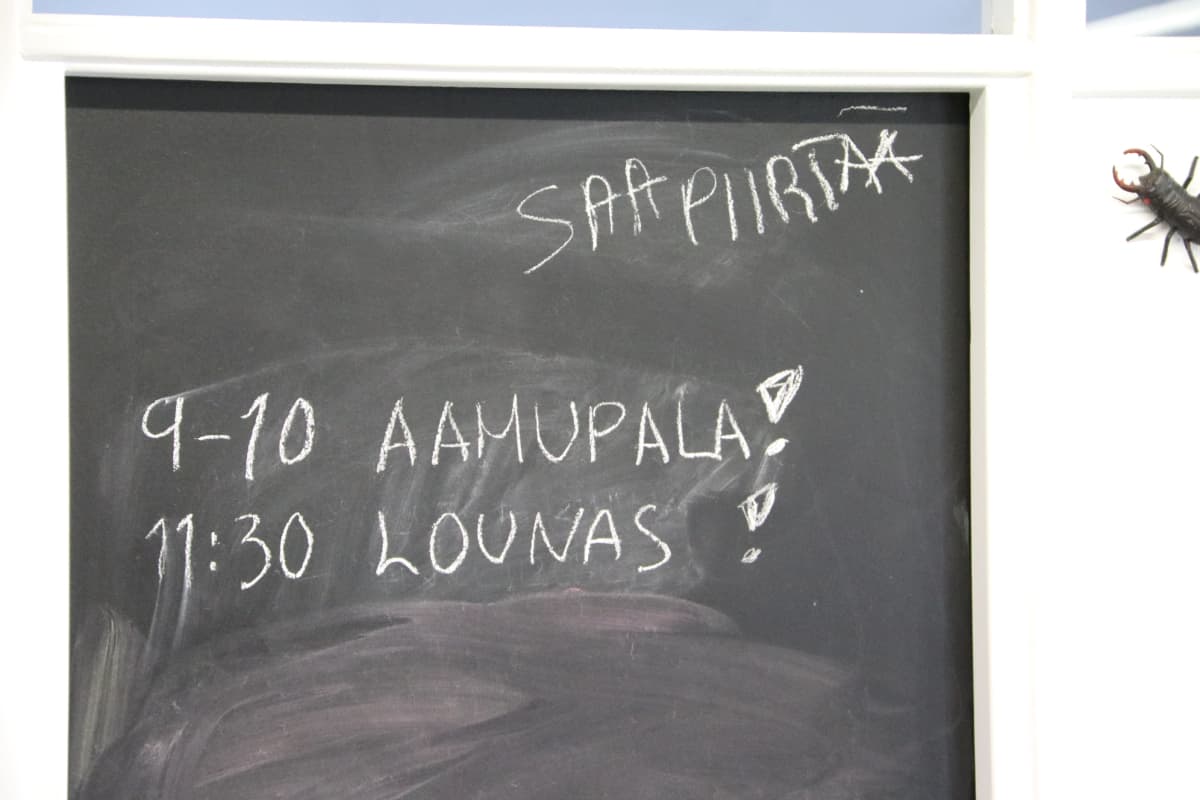 SAA PIIRTÄÄ
9-10 AAMUPALA!
11:30 LOUNAS !